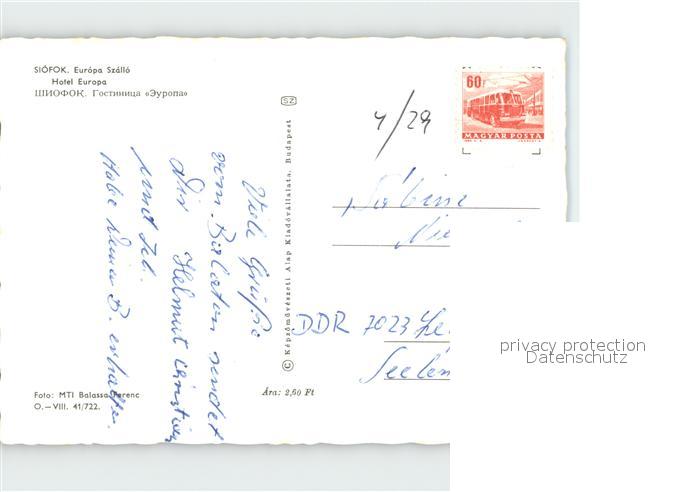 SIÓFOK. Európa Szálló
Hotel Europa
ШИОФОК. Гостиница «Эуропа»
SZ
60f
MAGYAR POSTA
4/29
Viele Grüße
vom Balaton sendet
Dir Helmut
und
Habe Deine B. erhalten.
© Képzőművészeti Alap Kiadóvállalata, Budapest
Sabine
DDR 7023 Le
Seelen
privacy protection
Datenschutz
Foto: MTI Balassa Ferenc
O.—VIII. 41/722.
Ára: 2,60 Ft